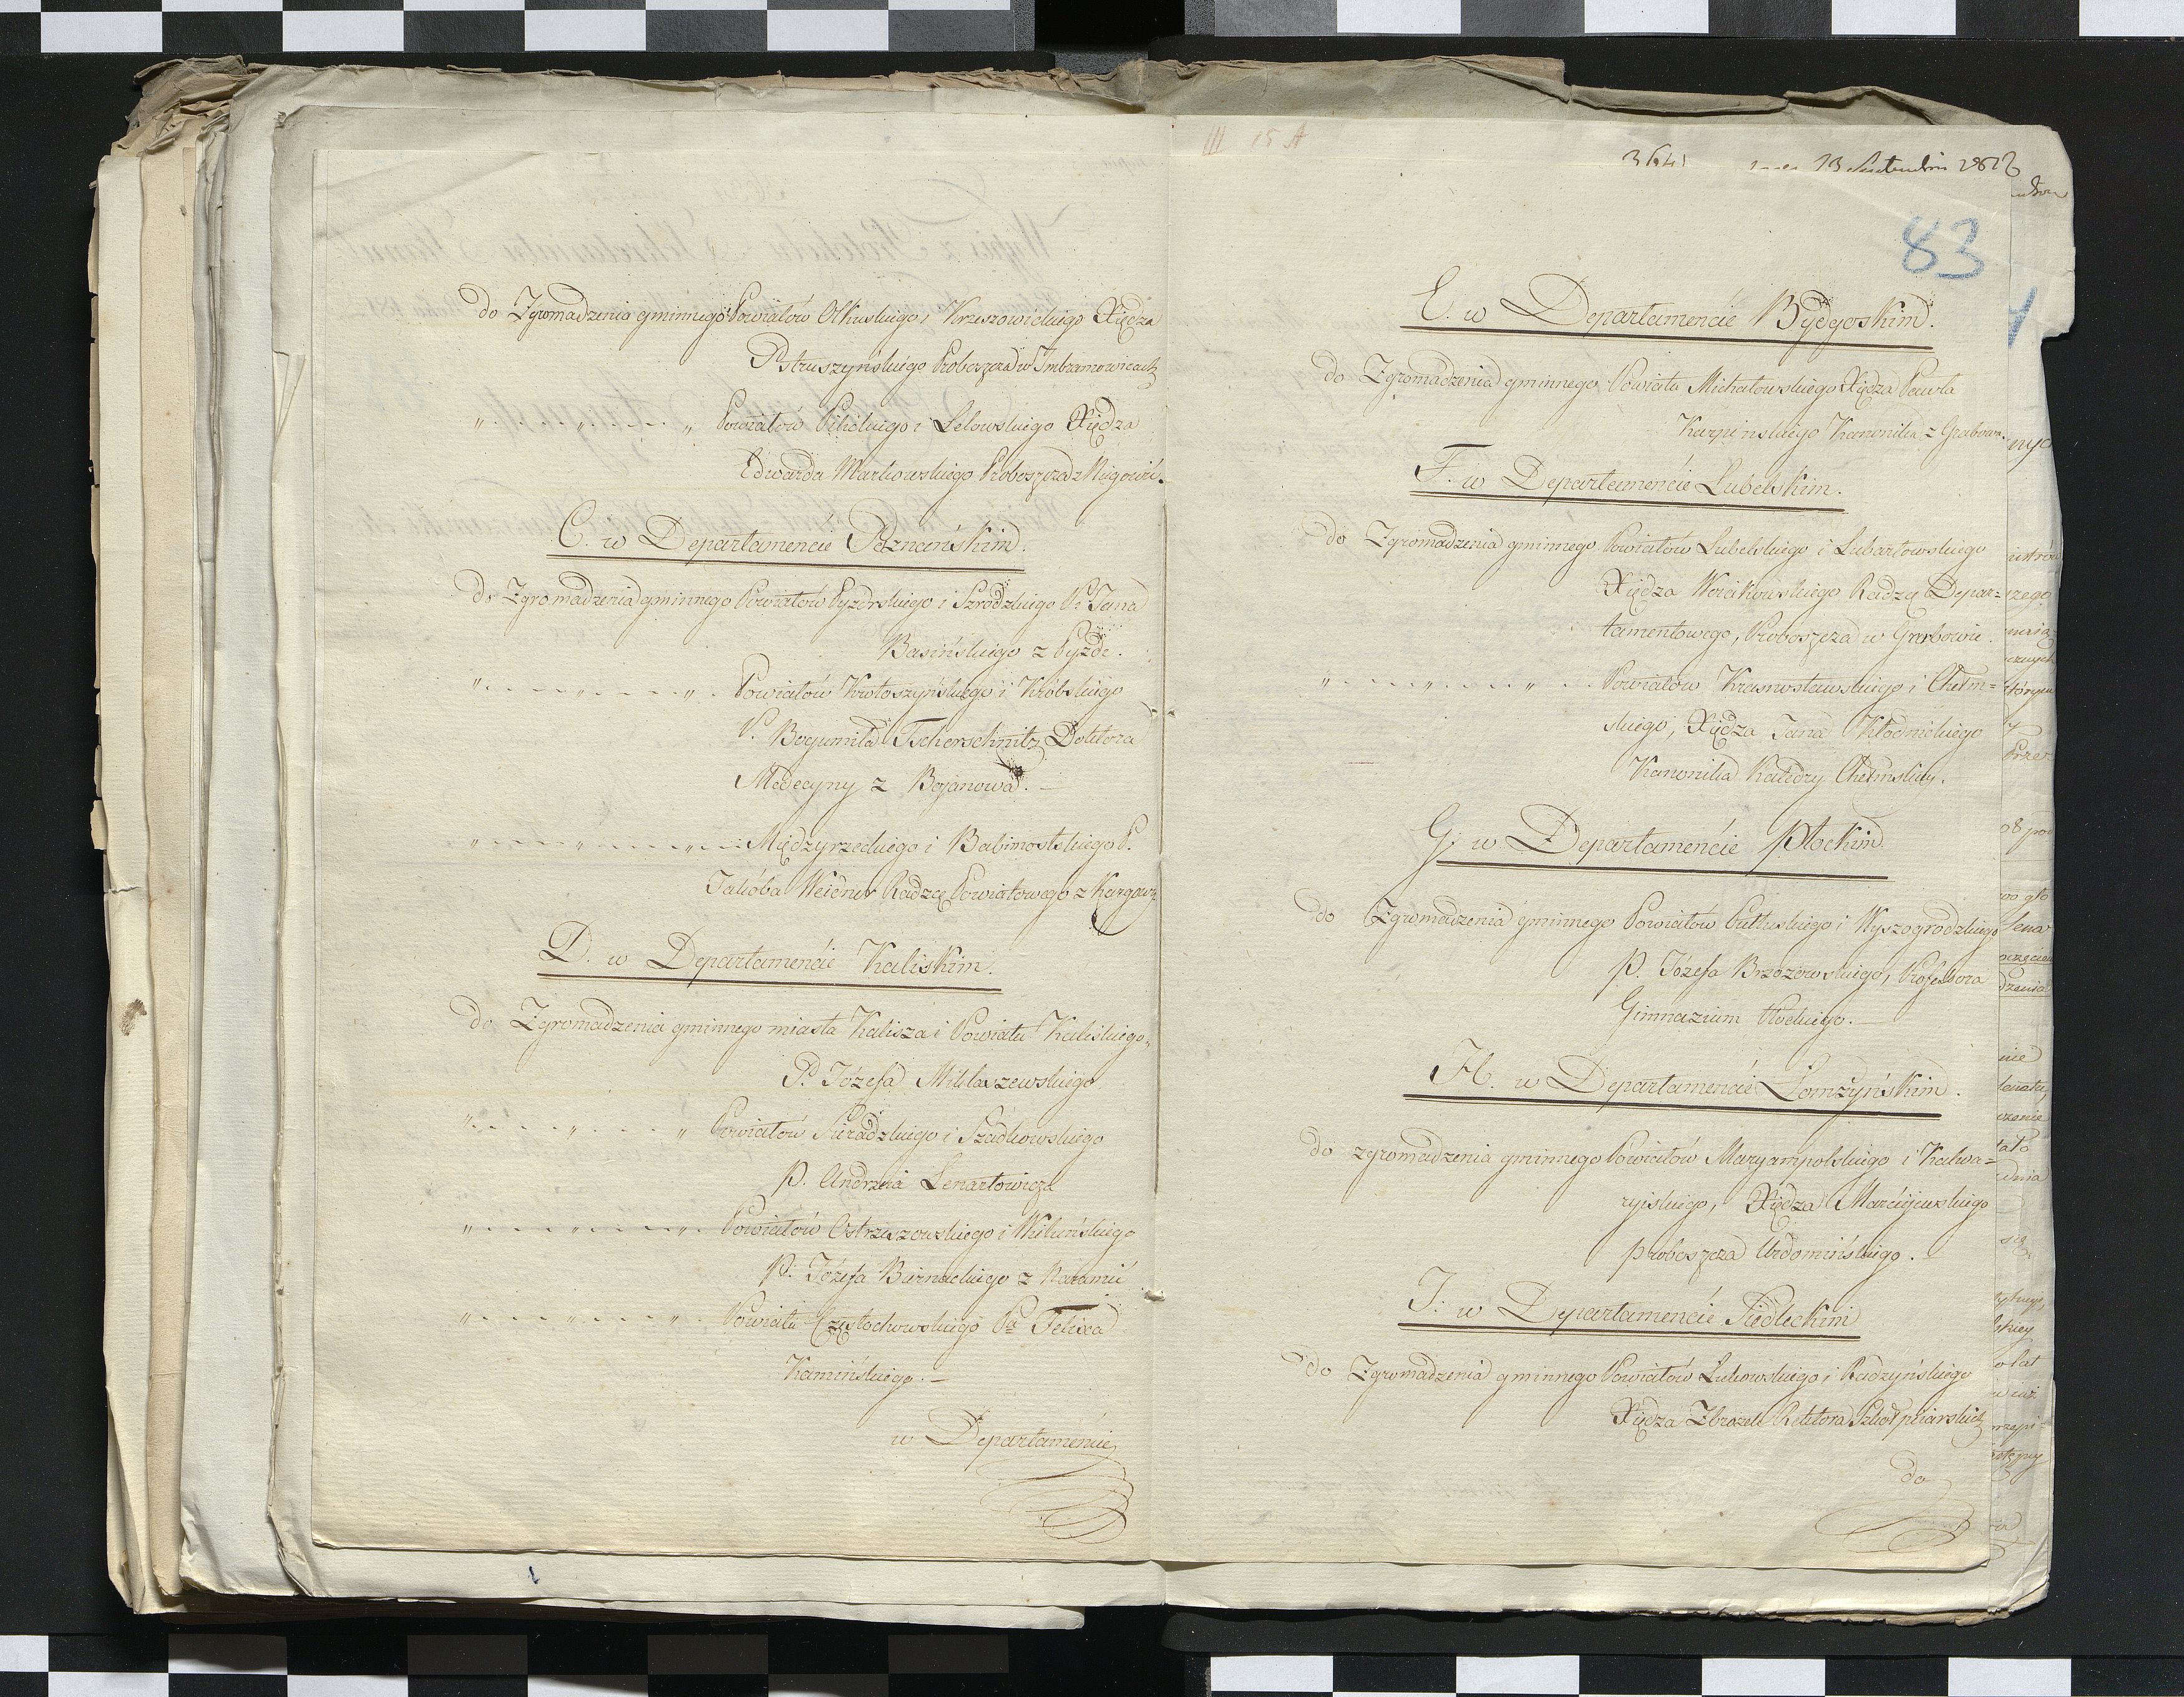 do Zgromadzenia gminnego Powiatów Olkuskiego i Krzeszowickiego Xiędza
Pstruszyńskiego Proboszcza w Imbramowicach
" . . . . . " . . . . . " Powiatów Pilickiego i Lelowskiego Xiędza
Edwarda Markowskiego Proboszcza z
C. w Departamencie Poznańskim.
do Zgromadzenia gminnego Powiatów Pyzdrskiego i Szrodzkiego P. Jana
Basińskiego z Pyzdr.
" . . . . . " . . . . . " . Powiatów Krotoszyńskiego i Kröbskiego
P. Bogumiła Tscherschnitz Doktora
Medecyny z Bojanowa. —
" . . . . . " . . . . . " . . . Międzyrzeckiego i Babimostskiego P.
Jakóba Weidner Radzcę Powiatowego z Kargowy
D. w Departamencie Kaliskim.
do Zgromadzenia gminnego miasta Kalisza i Powiatu Kaliskiego,
P. Józefa Mikłaszewskiego
" . . . . . " . . . . . " Powiatów Sieradzkiego i Szadkowskiego
P. Andrzeia Lenartowicza
" . . . . . " . . . . . " . Powiatów Ostrzeszowskiego i Wieluńskiego
P. Józefa Biernackiego z
" . . . . . " . . . . . " . Powiatu Częstochowskiego Pa Felixa
Kamińskiego. —
w Departamencie
III 15 A
3641 13 Septembris 1812
83
E. w Departamencie Bydgoskim.
do Zgromadzenia gminnego Powiatu Michałowskiego Xiędza Pawła
Karpinskiego Kanonika z Grabowa
F. w Departamencie Lubelskim.
do Zgromadzenia gminnego Powiatów Lubelskiego i Lubartowskiego
Xiędza Woiakowskiego Radzcę Depar=
tamentowego, Proboszcza w Garbowie.
" . . . . . " . . . . . " . . . Powiatów Krasnostawskiego i Chełm=
skiego, Xiędza Jana Kłodnickiego
Kanonika Katedry Chełmskiey.
G. w Departamencie Płockim
do Zgromadzenia gminnego Powiatów Pułtuskiego i Wyszogrodzkiego
P. Józefa Brzozowskiego, Professora
Gimnazium Płockiego. —
H. w Departamencie Łomżyńskim.
do zgromadzenia gminnego Powiatów Maryampolskiego i Kalwa=
ryiskiego, Xiędza Marcieiewskiego
proboszcza Urdomińskiego.
I. w Departamencie Siedleckim
do Zgromadzenia gminnego Powiatów Łukowskiego i Radzyńskiego
Xiędza Zbrozek Rektora Szkoł piarskich
do